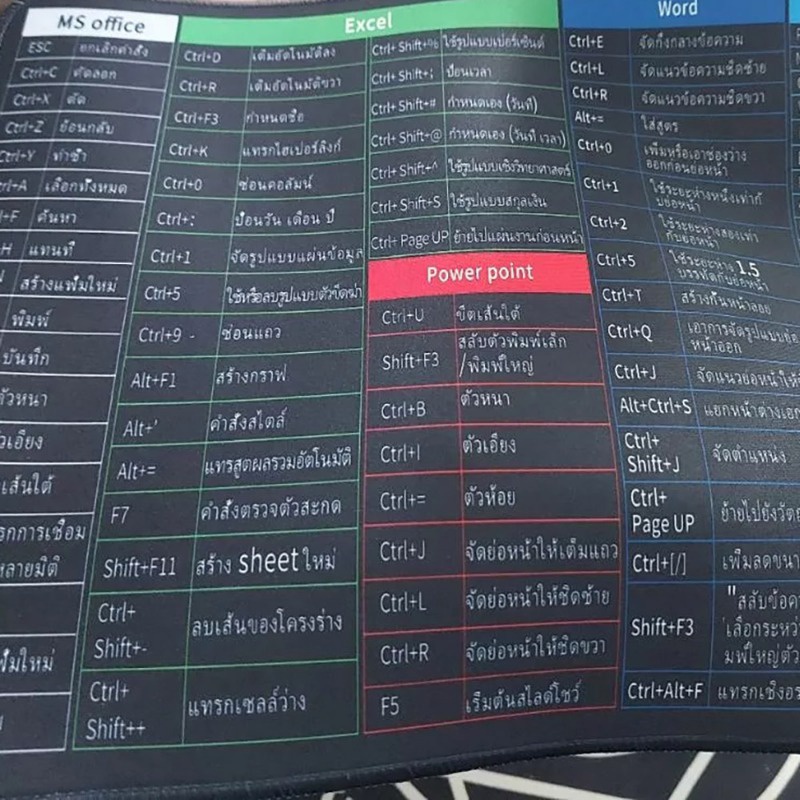 MS office
ESC ยกเลิกคำสั่ง
Ctrl+C คัดลอก
Ctrl+X ตัด
Ctrl+Z ย้อนกลับ
Ctrl+Y ทำซ้ำ
ctrl+A เลือกทั้งหมด
+F ค้นหา
H แทนที่
สร้างแฟ้มใหม่
พิมพ์
บันทึก
ตัวหนา
เส้นใต้
Excel
Ctrl+D เติมอัตโนมัติลง
Ctrl+R เติมอัตโนมัติขวา
Ctrl+F3 กำหนดชื่อ
Ctrl+K แทรกไฮเปอร์ลิงก์
Ctrl+0 ซ่อนคอลัมน์
Ctrl+; ป้อนวัน เดือน ปี
Ctrl+1 จัดรูปแบบแผ่นข้อมูล
Ctrl+5 ใช้หรือลบรูปแบบตัวขีดฆ่า
Ctrl+9 - ซ่อนแถว
Alt+F1 สร้างกราฟ
Alt+' คำสั่งสไตล์
Alt+= แทรสูตผลรวมอัตโนมัติ
F7 คำสั่งตรวจตัวสะกด
Shift+F11 สร้าง sheet ใหม่
Ctrl+
Shift+- ลบเส้นของโครงร่าง
Ctrl+
Shift++ แทรกเซลล์ว่าง
Ctrl+ Shift+% ใช้รูปแบบเปอร์เซ็นต์
Ctrl+ Shift+; ป้อนเวลา
Ctrl+ Shift+# กำหนดเอง (วันที่)
Ctrl+ Shift+@ กำหนดเอง (วันที่ เวลา)
Ctrl+ Shift+^ ใช้รูปแบบเชิงวิทยาศาสตร์
Ctrl+ Shift+S ใช้รูปแบบสกุลเงิน
Ctrl+ Page UP ย้ายไปแผ่นงานก่อนหน้า
Power point
Ctrl+U ขีดเส้นใต้
Shift+F3 สลับตัวพิมพ์เล็ก
/พิมพ์ใหญ่
Ctrl+B ตัวหนา
Ctrl+I ตัวเอียง
Ctrl+= ตัวห้อย
Ctrl+J จัดย่อหน้าให้เต็มแถว
Ctrl+L จัดย่อหน้าให้ชิดซ้าย
Ctrl+R จัดย่อหน้าให้ชิดขวา
F5 เริ่มต้นสไลด์โชว์
Word
Ctrl+E จัดกึ่งกลางข้อความ
Ctrl+L จัดแนวข้อความชิดซ้าย
Ctrl+R จัดแนวข้อความชิดขวา
Alt+= ใส่สูตร
Ctrl+0 เพิ่มหรือเอาช่องว่าง
ออกก่อนย่อหน้า
Ctrl+1 ใช้ระยะห่างหนึ่งเท่ากับ
ย่อหน้า
Ctrl+2 ใช้ระยะห่างสองเท่า
กับย่อหน้า
Ctrl+5 ใช้ระยะห่าง 1.5
บรรทัดกับย่อหน้า
Ctrl+T สร้างกั้นหน้าลอย
Ctrl+Q เอาการจัดรูปแบบย่อ
หน้าออก
Ctrl+J จัดแนวย่อหน้าให้
Alt+Ctrl+S แยกหน้าต่างเอก
Ctrl+
Shift+J จัดตำแหน่ง
Ctrl+
Page UP ย้ายไปยังวัตถุ
Ctrl+[/] เพิ่มลดขนา
Shift+F3 "สลับข้อค
เลือกระหว่
มพ์ใหญ่ตัว
Ctrl+Alt+F แทรกเชิงอร